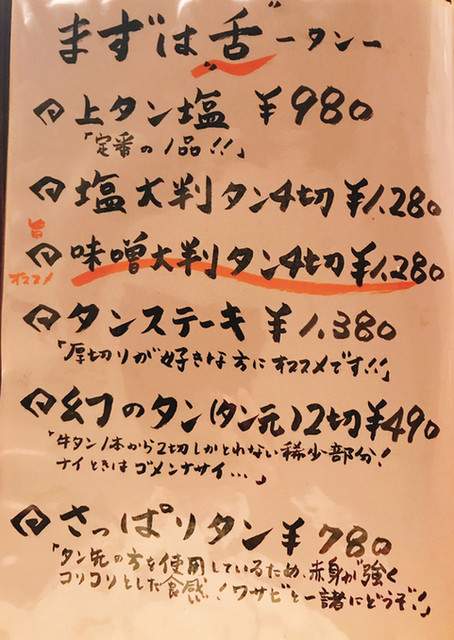 まずは"舌"ータンー
上タン塩 ¥980
「定番の1品!!」
塩大判タン4切 ¥1,280
旨
オススメ
味噌大判タン4切 ¥1,280
タンステーキ ¥1,380
「厚切りが好きな方にオススメです!!」
幻のタン(タン元)2切¥490
「牛タン1本から2切しかとれない稀少部分!
ナイときはゴメンナサイ…」
さっぱりタン¥780
「タン先の方を使用しているため、赤身が強く
コリコリとした食感!ワサビと一諸にどうぞ!」